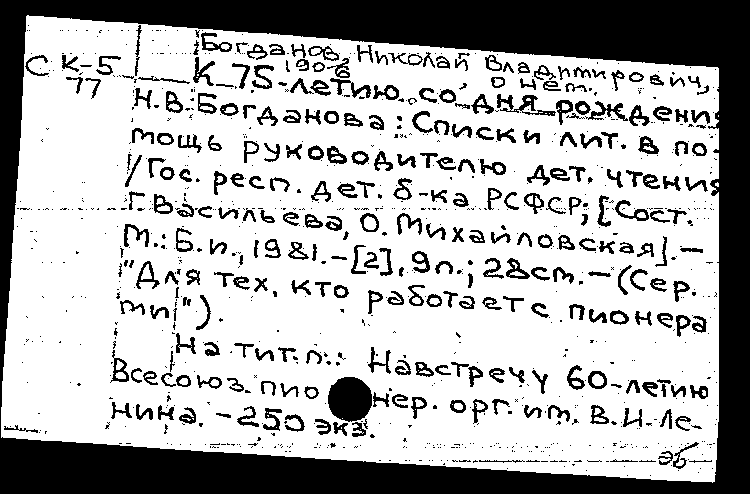 Богданов, Николай Владимирович,
1906
о нем.
С К-5
77
К 75-летию со дня рождения
Н.В. Богданова: Списки лит. в по-
мощь руководителю дет. чтения
/Гос. респ. дет. б-ка РСФСР; [Сост.
Г. Васильева, О. Михайловская]. –
М.: Б.и., 1981. – [2], 9л.; 28см. – (Сер.
"Для тех, кто работает с пионера
ми").
На тит.л.: Навстречу 60-летию
Всесоюз. пионер. орг. им. В.И. Ле-
нина. – 250 экз.
эб